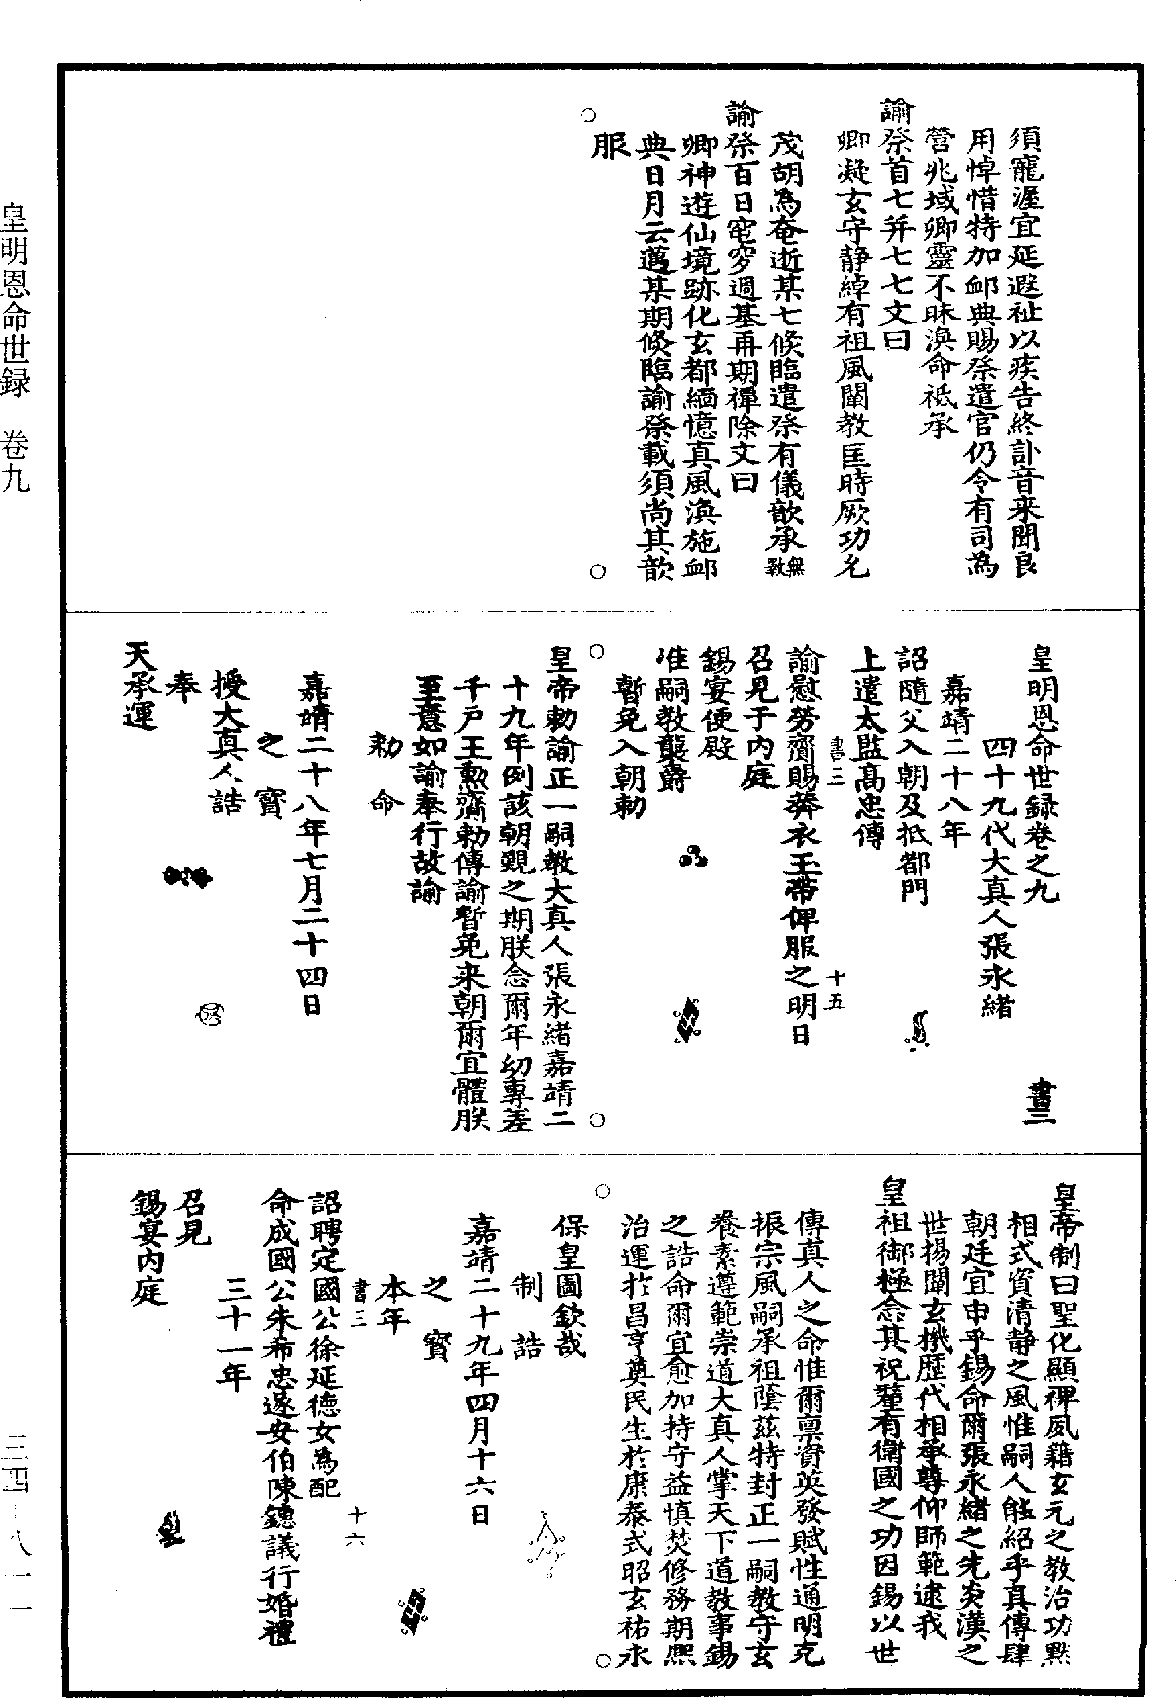 皇明恩命世録　卷九
三四－八一一
須寵渥宜延遐祉以疾告終訃音来聞良
用悼惜特加䘏典賜祭遣官仍令有司為
營兆域卿靈不昧渙命祗承
諭祭首七并七七文曰
卿凝玄守静綽有祖風闡教匡時厥功允
茂胡為奄逝某七倐臨遣祭有儀歆承無斁
諭祭百日窀穸週基再期禫除文曰
卿神遊仙境跡化玄都緬憶真風渙施䘏
典日月云邁某期倐臨諭祭載須尚其歆
服
皇明恩命世録卷之九
書三
四十九代大真人張永緒
嘉靖二十八年
詔隨父入朝及抵都門
上遣太監高忠傳
書三
十五
諭慰勞齎賜蟒衣玉帶俾服之明日
召見于内庭
錫宴便殿
准嗣教襲爵
暫免入朝勅
皇帝勅諭正一嗣教大真人張永緒嘉靖二
十九年例該朝覲之期朕念爾年幼專差
千戶王勲齎勅傳諭暫免来朝爾宜體朕
至意如諭奉行故諭
勅命
嘉靖二十八年七月二十四日
之寳
授大真人誥
奉
天承運
皇帝制曰聖化顯禆夙藉玄元之教治功黙
相式資清静之風惟嗣人能紹乎真傳肆
朝廷宜申乎錫命爾張永緒之先炎漢之
世揚闡玄機歷代相承尊仰師範逮我
皇祖御極念其祝釐有衛國之功因錫以世
傳真人之命惟爾禀資英發賦性通明克
振宗風嗣承祖蔭茲特封正一嗣教守玄
養素遵範崇道大真人掌天下道教事錫
之誥命爾宜愈加持守益慎焚修務期熈
治運於昌亨奠民生於康泰式昭玄祐永
保皇圖欽哉
制誥
嘉靖二十九年四月十六日
之寳
本年
書三
十六
詔聘定國公徐延德女為配
命成國公朱希忠遂安伯陳鏸議行婚禮
三十一年
召見
錫宴内庭